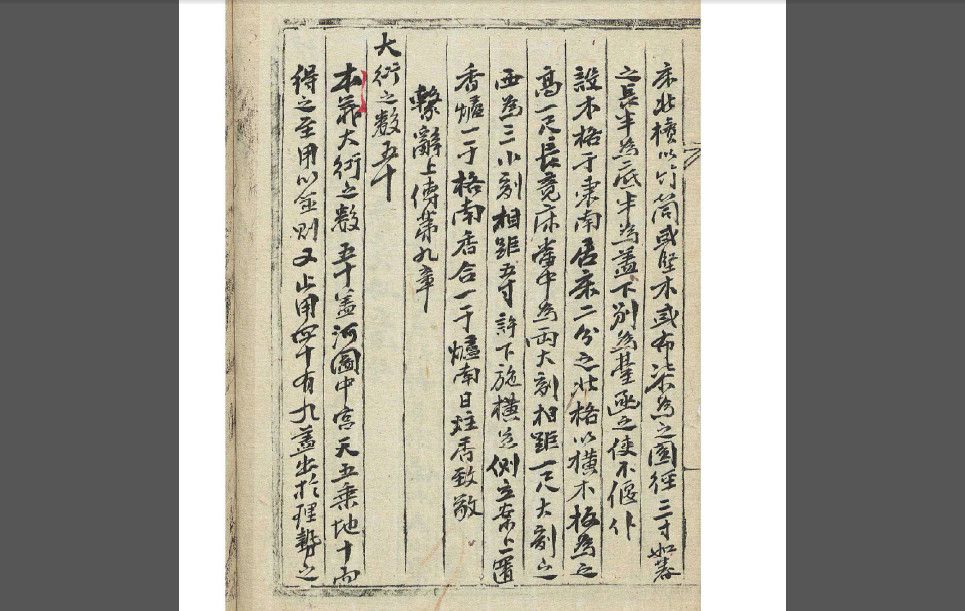 床北櫝以竹筒或堅木或布柒為之圓徑三寸如蓍
之長半為底半為蓋下別為臺函之使不偃仆
設木格于櫝南居床二分之北格以橫木板為之
高一尺長竟床當中為兩大刻相距一尺大刻之
西為三小刻相距五寸許下施橫足側立案上置
香爐一于格南香合一于爐南日炷香致敬
繫辭上傳第九章
大衍之數五十
本義大衍之數五十蓋河圖中宮天五乘地十而
得之至用以筮則又止用四十有九蓋出於理勢之